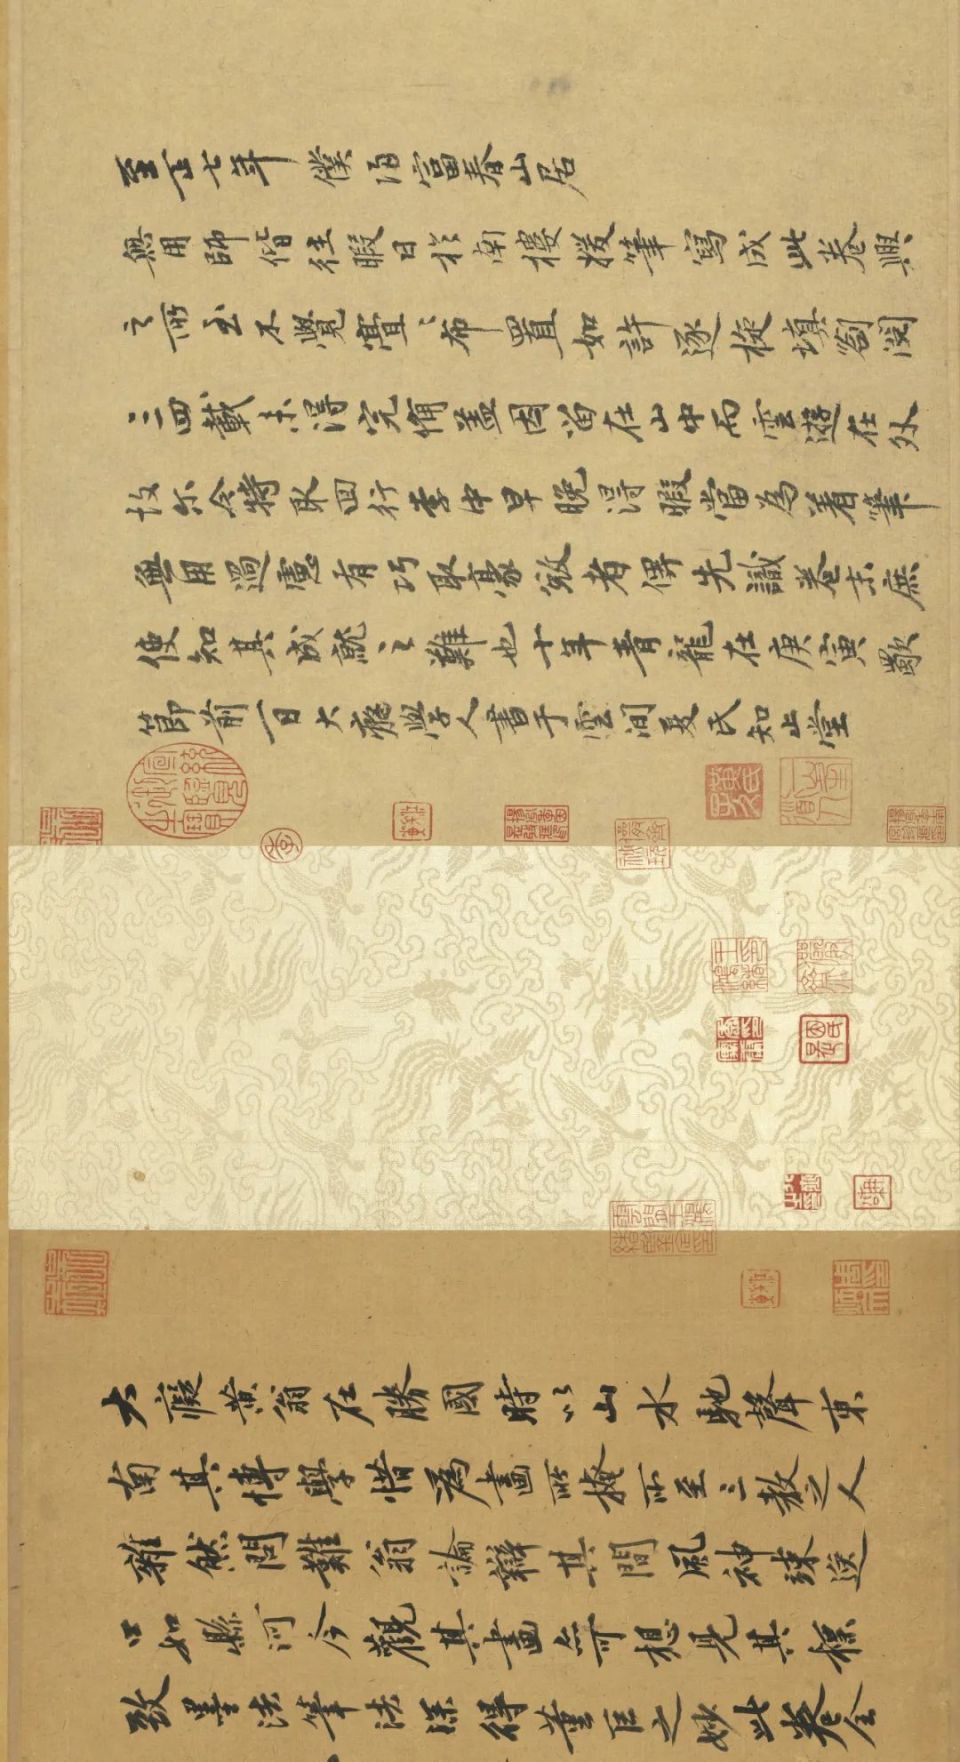 至正七年僕歸富春山居
無用師偕往暇日於南樓援筆寫成此卷興
之所至不覺亹亹布置如許逐旋填劄閱
三四載未得完備蓋因留在山中而雲遊在外
故尔今特取回行李中早晚得暇當為着筆
無用過慮有巧取豪敓者俾先識卷末庶
使知其成就之難也十年青龍在庚寅歜
節前一日大癡學人書于雲間夏氏知止堂
大癡黃翁在勝國時以山水馳聲東
南其博學惜為畫所掩所至三教之人
雜然問難翁論辯其間風神竦逸
口如懸河今觀其畫亦可想見其標
致墨法筆法深得董巨之妙此卷全